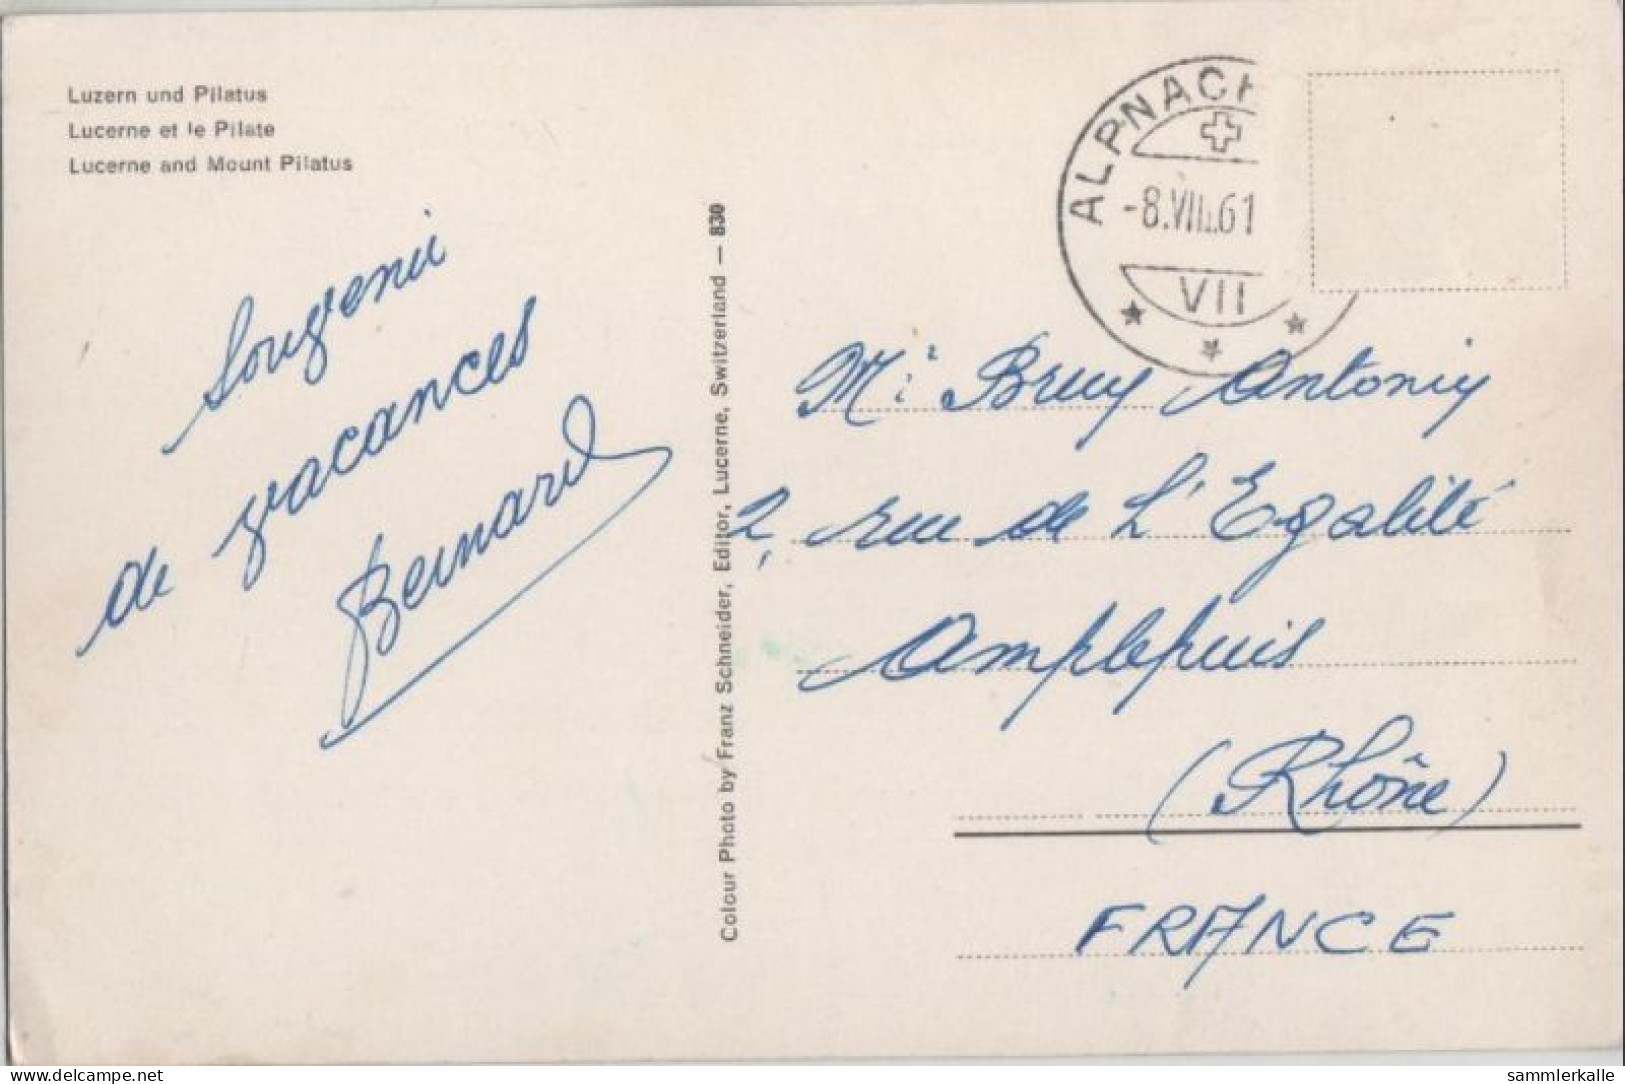 Luzern und Pilatus
Lucerne et le Pilate
Lucerne and Mount Pilatus
ALPNACH
-8.VIII.61
VII
Souvenir
de vacances
Bernard
Colour Photo by Franz Schneider, Editor, Lucerne, Switzerland — 830
Mr Bruy Antonin
2, rue de L'Egalité
Amplepuis
(Rhône)
FRANCE
delcampe.net
sammlerkalle